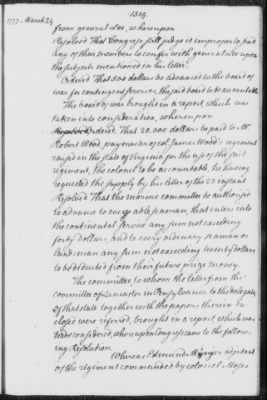 1319.
1777. March 24
from general Lee, whereupon
Resolved That Congress still judge it improper to send
any of their members to confer with general Lee upon
the subjects mentioned in his letter.
Ordered That 500 dollars be advanced to the board of
war for contingent forever, the said board to be accountable.
The board of war brought in a report, which was
taken into consideration, whereupon
Ordered, That 20.000 dollars be paid to Mr
Robert Wood, paymaster of col. James Wood's regiment
raised in the state of Virginia for the use of the said
regiment, the colonel to be accountable, he having
requested the supply by his letter of the 23 instant
Resolved That the marine committee be authorised
to advance to every able seaman, that enters into
the continental service any sum not exceeding
forty dollars, and to every ordinary seaman or
landsman any sum not exceeding twenty dollars
to be deducted from their future prize money.
The committee, to whom the letter from the
committee of Lancaster in Pensylvania to the delegates
of that state together with the papers therein in
closed were referred, brought in a report, which was
read & considered, whereupon Congress came to the follow
ing Resolution.
Whereas Edmund adjutant
of the regiment commanded by colonel Moses